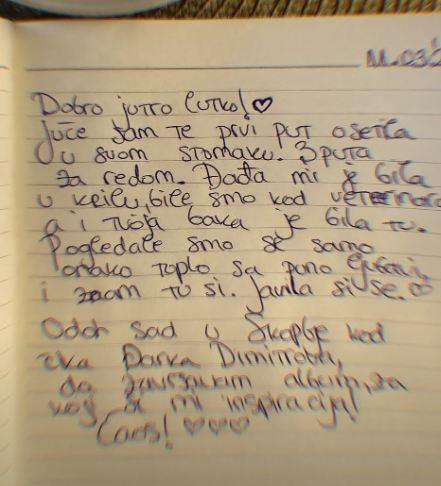 11.03
Dobro jutro lutko! ♡
Juče sam te prvi put osetila
u svom stomaku. 3 puta
za redom. Dada mi je bila
u krilu, bile smo kod veterinara
a i tvoja baka je bila tu.
Pogledale smo se samo
onako toplo sa puno ljubavi,
i znam tu si. Javila si se. ♡
Odoh sad u Skoplje kod
čika Darka Dimitrova,
da završavam album, za
koji si mi inspiracija!
Caos! ♡♡♡